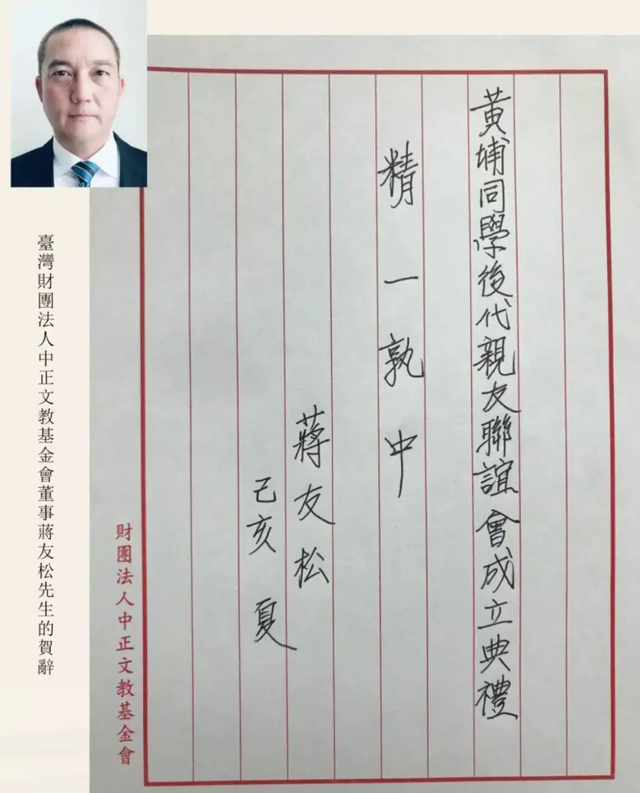 黃埔同學後代親友聯誼會成立典禮
精一執中
蔣友松
己亥夏
財團法人中正文教基金會
臺灣財團法人中正文教基金會董事蔣友松先生的賀辭